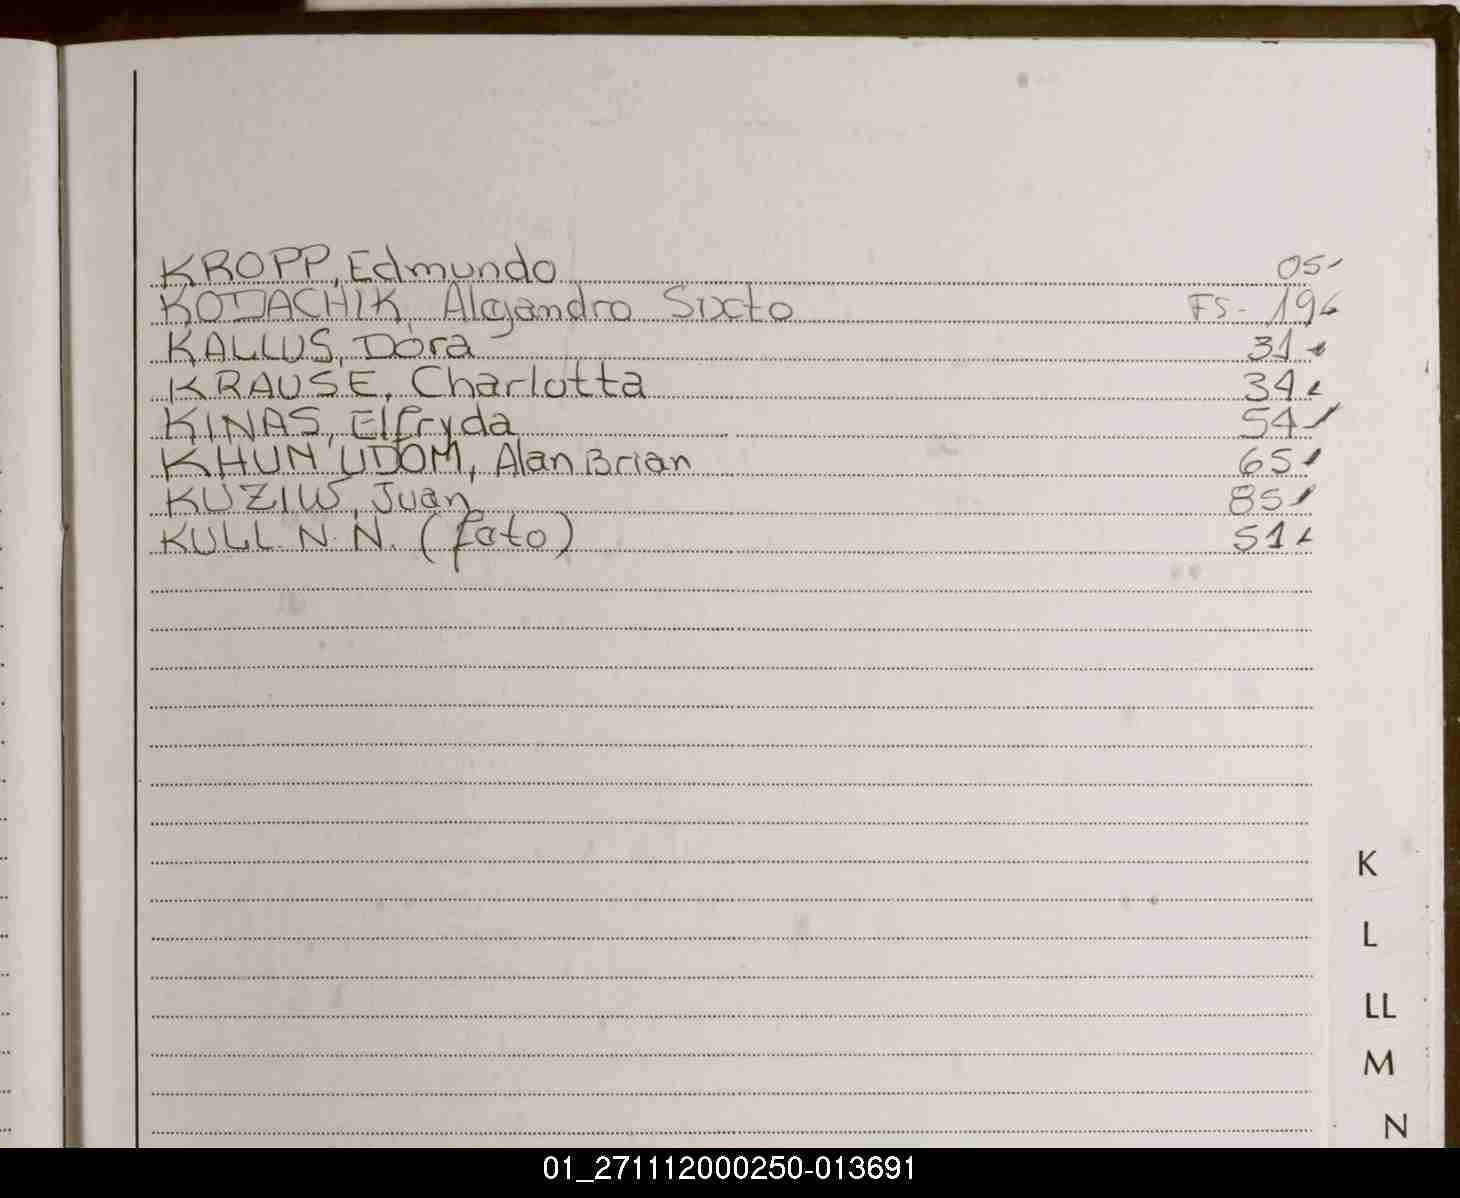 KROPP, Edmundo 05
KODACHIK, Alejandro Sixto FS - 196
KALLUS, Dora 31
KRAUSE, Charlotta 34
KINAS, Elfryda 54
KHUN UDOM, Alan Brian 65
KUZIW, Juan 85
KULL N. N. (foto) 51
K
L
LL
M
N
01_271112000250-013691